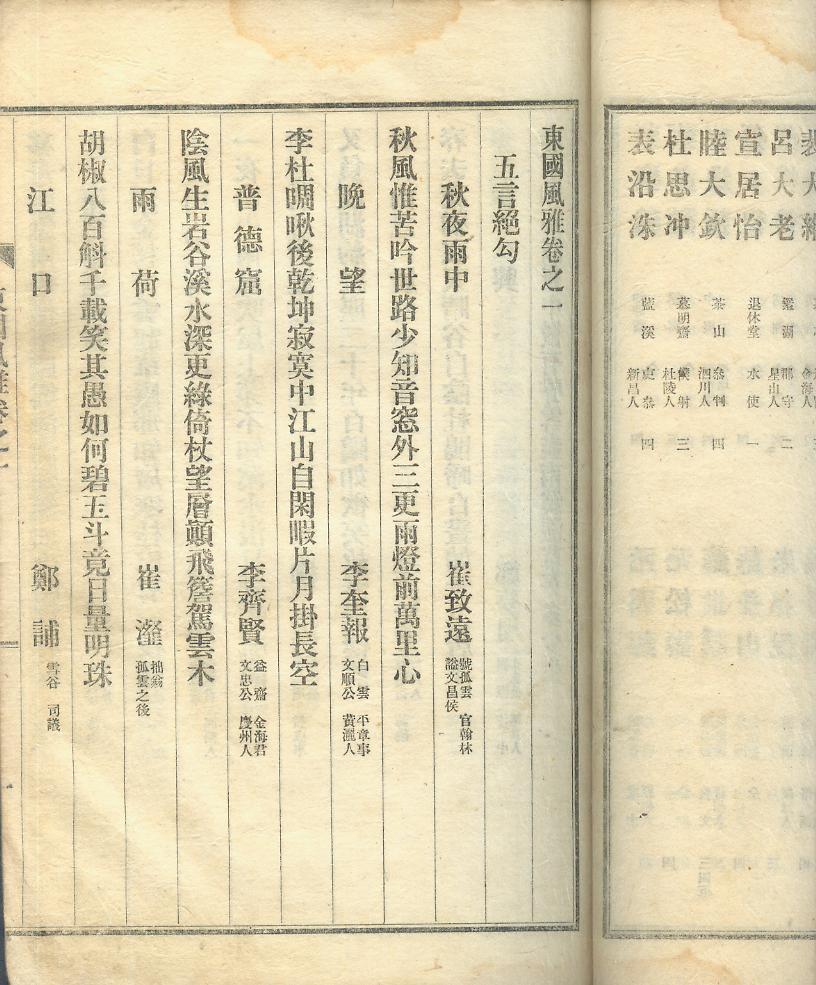 呂大老 鑑湖 郡守 星山人 二
宣居怡 退休堂 水使 一
陸大欽 茶山 叅判 泗川人 四
杜思冲 慕明齋 僕射 杜陵人 三
表沿沫 藍溪 東叅 新昌人 四
東國風雅卷之一
五言絕勾
秋夜雨中 崔致遠 號孤雲 官翰林 謚文昌侯
秋風惟苦吟世路少知音窓外三更雨燈前萬里心
晩望 李奎報 白雲 平章事 文順公 黃驪人
李杜啁啾後乾坤寂寞中江山自閑暇片月掛長空
普德窟 李齊賢 益齋 金海君 文忠公 慶州人
陰風生岩谷溪水深更綠倚杖望層顚飛簷駕雲木
雨荷 崔瀣 拙翁 孤雲之後
胡椒八百斛千載笑其愚如何碧玉斗竟日量明珠
江口 鄭誧 雪谷 司議
東國風雅卷之一